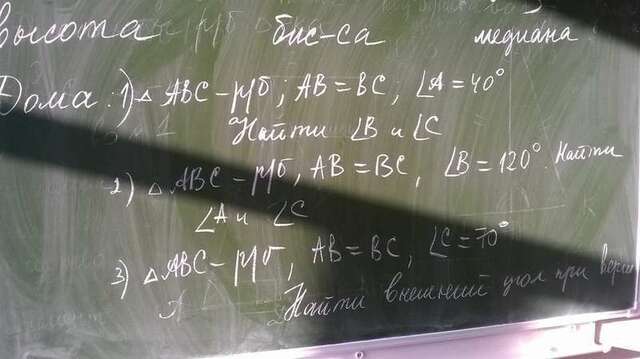 высота бис-са медиана
Дома: 1) △ ABC – р/б; AB = BC; ∠A = 40°
Найти ∠B и ∠C
2) △ ABC – р/б, AB = BC, ∠B = 120°. Найти
∠A и ∠C
3) △ ABC – р/б, AB = BC, ∠C = 70°
Найти внешний угол при